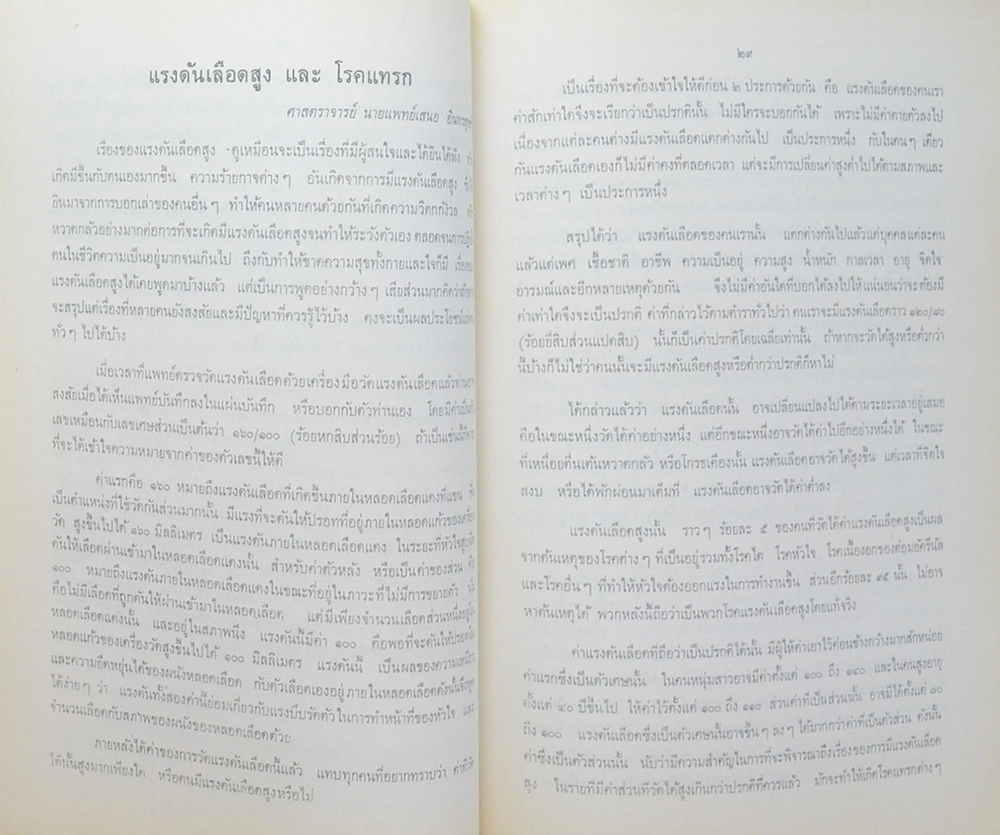 แรงดันเลือดสูง และ โรคแทรก
ศาสตราจารย์ นายแพทย์เสนอ อินทรสุขศรี
เรื่องของแรงดันเลือดสูง -ดูเหมือนจะเป็นเรื่องที่มีผู้สนใจและได้ยินได้ฟัง
เกิดมีขึ้นกับตนเองมากขึ้น ความร้ายกาจต่างๆ อันเกิดจากการมีแรงดันเลือดสูง
ยินมาจากการบอกเล่าของคนอื่นๆ ทำให้คนหลายคนด้วยกันที่เกิดความวิตกกังวล
หวาดกลัวอย่างมากต่อการที่จะเกิดมีแรงดันเลือดสูงจนทำให้ระวังตัวเอง ตลอดจนการปฏิบัติ
ตนในชีวิตความเป็นอยู่มากจนเกินไป ถึงกับทำให้ขาดความสุขทั้งกายและใจก็มี เรื่องของ
แรงดันเลือดสูงได้เคยพูดมาบ้างแล้ว แต่เป็นการพูดอย่างกว้างๆ เสียส่วนมากคิดว่า
จะสรุปแต่เรื่องที่หลายคนยังสงสัยและมีปัญหาที่ควรรู้ไว้บ้าง คงจะเป็นผลประโยชน์
ทั่วๆ ไปได้บ้าง
เมื่อเวลาที่แพทย์ตรวจวัดแรงดันเลือดด้วยเครื่องมือวัดแรงดันเลือดแล้วท่าน
สงสัยเมื่อได้เห็นแพทย์บันทึกลงในแผ่นบันทึก หรือบอกกับตัวท่านเอง โดยมีค่าเป็นตัว
เลขเหมือนกับเลขเศษส่วนเป็นต้นว่า ๑๖๐/๑๐๐ (ร้อยหกสิบส่วนร้อย) ถ้าเป็นเช่นนี้
ที่จะได้เข้าใจความหมายจากค่าของตัวเลขนี้ให้ดี
ค่าแรกคือ ๑๖๐ หมายถึงแรงดันเลือดที่เกิดขึ้นภายในหลอดเลือดแดงที่แขน
เป็นตำแหน่งที่ใช้วัดกันส่วนมากนั้น มีแรงที่จะดันให้ปรอทที่อยู่ภายในหลอดแก้วของเครื่อง
วัด สูงขึ้นไปได้ ๑๖๐ มิลลิเมตร เป็นแรงดันภายในหลอดเลือดแดง ในระยะที่หัวใจสูบฉีด
ดันให้เลือดผ่านเข้ามาในหลอดเลือดแดงนั้น สำหรับค่าตัวหลัง หรือเป็นค่าของส่วน คือ
๑๐๐ หมายถึงแรงดันภายในหลอดเลือดแดงในขณะที่อยู่ในภาวะที่ไม่มีการขยายตัว นั่น
คือไม่มีเลือดที่ถูกดันให้ผ่านเข้ามาในหลอดเลือด แต่มีเพียงจำนวนเลือดส่วนหนึ่งอยู่ใน
หลอดเลือดแดงนั้น และอยู่ในสภาพนิ่ง แรงดันนี้มีค่า ๑๐๐ คือพอที่จะดันให้ปรอทใน
หลอดแก้วของเครื่องวัดสูงขึ้นไปได้ ๑๐๐ มิลลิเมตร แรงดันนี้ เป็นผลของความ
และความยืดหยุ่นได้ของผนังหลอดเลือด กับตัวเลือดเองอยู่ภายในหลอดเลือดดังนั้นจึงพูด
ได้ง่ายๆ ว่า แรงดันทั้งสองค่านี้ย่อมเกี่ยวกับแรงบีบรัดตัวในการทำหน้าที่ของหัวใจ และ
จำนวนเลือดกับสภาพของผนังของหลอดเลือดด้วย
ภายหลังได้ค่าของการวัดแรงดันเลือดนี้แล้ว แทบทุกคนที่อยากทราบว่า ค่าที่วัด
ได้นั้นสูงมากเพียงใด หรือคนมีแรงดันเลือดสูงหรือไม่
๒๙
เป็นเรื่องที่จะต้องเข้าใจให้ดีก่อน ๒ ประการด้วยกัน คือ แรงดันเลือดของคนเรา
ค่าสักเท่าใดจึงจะเรียกว่าเป็นปรกตินั้น ไม่มีใครจะบอกกันได้ เพราะไม่มีค่าตายตัวลงไป
เนื่องจากแต่ละคนต่างมีแรงดันเลือดแตกต่างกันไป เป็นประการหนึ่ง กับในคนๆ เดียว
กันแรงดันเลือดเองก็ไม่มีค่าคงที่ตลอดเวลา แต่จะมีการเปลี่ยนค่าสูงต่ำไปได้ตามสภาพและ
เวลาต่างๆ เป็นประการหนึ่ง
สรุปได้ว่า แรงดันเลือดของคนเรานั้น แตกต่างกันไปแล้วแต่บุคคลแต่ละคน
แล้วแต่เพศ เชื้อชาติ อาชีพ ความเป็นอยู่ ความสูง น้ำหนัก กาลเวลา อายุ จิตใจ
อารมณ์และอีกหลายเหตุด้วยกัน จึงไม่มีค่าอันใดที่บอกได้ลงไปให้แน่นอนว่าจะต้องมี
ค่าเท่าใดจึงจะเป็นปรกติ ค่าที่กล่าวไว้ตามตำราทั่วไปว่า คนเราจะมีแรงดันเลือดราว ๑๒๐/๘๐
(ร้อยยี่สิบส่วนแปดสิบ) นั้นก็เป็นค่าปรกติโดยเฉลี่ยเท่านั้น ถ้าหากจะวัดได้สูงหรือต่ำกว่า
นี้บ้างก็ไม่ใช่ว่าคนนั้นจะมีแรงดันเลือดสูงหรือต่ำกว่าปรกติก็หาไม่
ได้กล่าวแล้วว่า แรงดันเลือดนั้น อาจเปลี่ยนแปลงไปได้ตามระยะเวลาอยู่เสมอ
คือในขณะหนึ่งวัดได้ค่าอย่างหนึ่ง แต่อีกขณะหนึ่งอาจวัดได้ค่าไปอีกอย่างหนึ่งได้ ในขณะ
ที่เหนื่อยตื่นเต้นหวาดกลัว หรือโกรธเคืองนั้น แรงดันเลือดอาจวัดได้สูงขึ้น แต่เวลาที่จิตใจ
สงบ หรือได้พักผ่อนมาเต็มที่ แรงดันเลือดอาจวัดได้ค่าต่ำลง
แรงดันเลือดสูงนั้น ราวๆ ร้อยละ ๕ ของคนที่วัดได้ค่าแรงดันเลือดสูงเป็นผล
จากต้นเหตุของโรคต่างๆ ที่เป็นอยู่รวมทั้งโรคไต โรคหัวใจ โรคเนื้องอกของต่อมอัครีนัล
และโรคอื่นๆ ที่ทำให้หัวใจต้องออกแรงในการทำงานขึ้น ส่วนอีกร้อยละ ๙๕ นั้น ไม่อาจ
หาต้นเหตุได้ พวกหลังนี้ถือว่าเป็นพวกโรคแรงดันเลือดสูงโดยแท้จริง
ค่าแรงดันเลือดที่ถือว่าเป็นปรกติได้นั้น มีผู้ให้ค่าเอาไว้ค่อนข้างกว้างมากสักหน่อย
ค่าแรกซึ่งเป็นตัวเศษนั้น ในคนหนุ่มสาวอาจมีค่าตั้งแต่ ๑๐๐ ถึง ๑๔๐ และในคนสูงอายุ
ตั้งแต่ ๔๐ ปีขึ้นไป ให้ค่าไว้ตั้งแต่ ๑๐๐ ถึง ๑๑๐ ส่วนค่าที่เป็นส่วนนั้น อาจมีได้ตั้งแต่ ๘๐
ถึง ๑๐๐ แรงดันเลือดซึ่งเป็นตัวเศษนั้นอาจขึ้นๆ ลงๆ ได้มากกว่าค่าที่เป็นตัวส่วน ดังนั้น
ค่าซึ่งเป็นตัวส่วนนั้น นับว่ามีความสำคัญในการที่จะพิจารณาถึงเรื่องของการมีแรงดันเลือด
สูง ในรายที่มีค่าส่วนที่วัดได้สูงเกินกว่าปรกติที่ควรแล้ว มักจะทำให้เกิดโรคแทรกต่างๆ